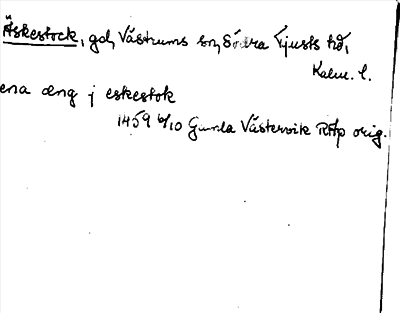 Äskestock, gd, Västrums sn, Södra Tjusts hd,
Kalm. l.
ena æng j eskestok
1459 6/10 Gamla Västervik RAp orig.